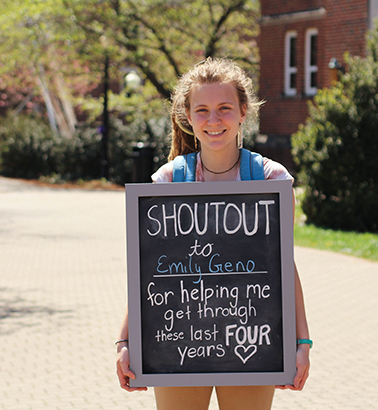 SHOUTOUT
to
Emily Geno
for helping me
get through
these last FOUR
years